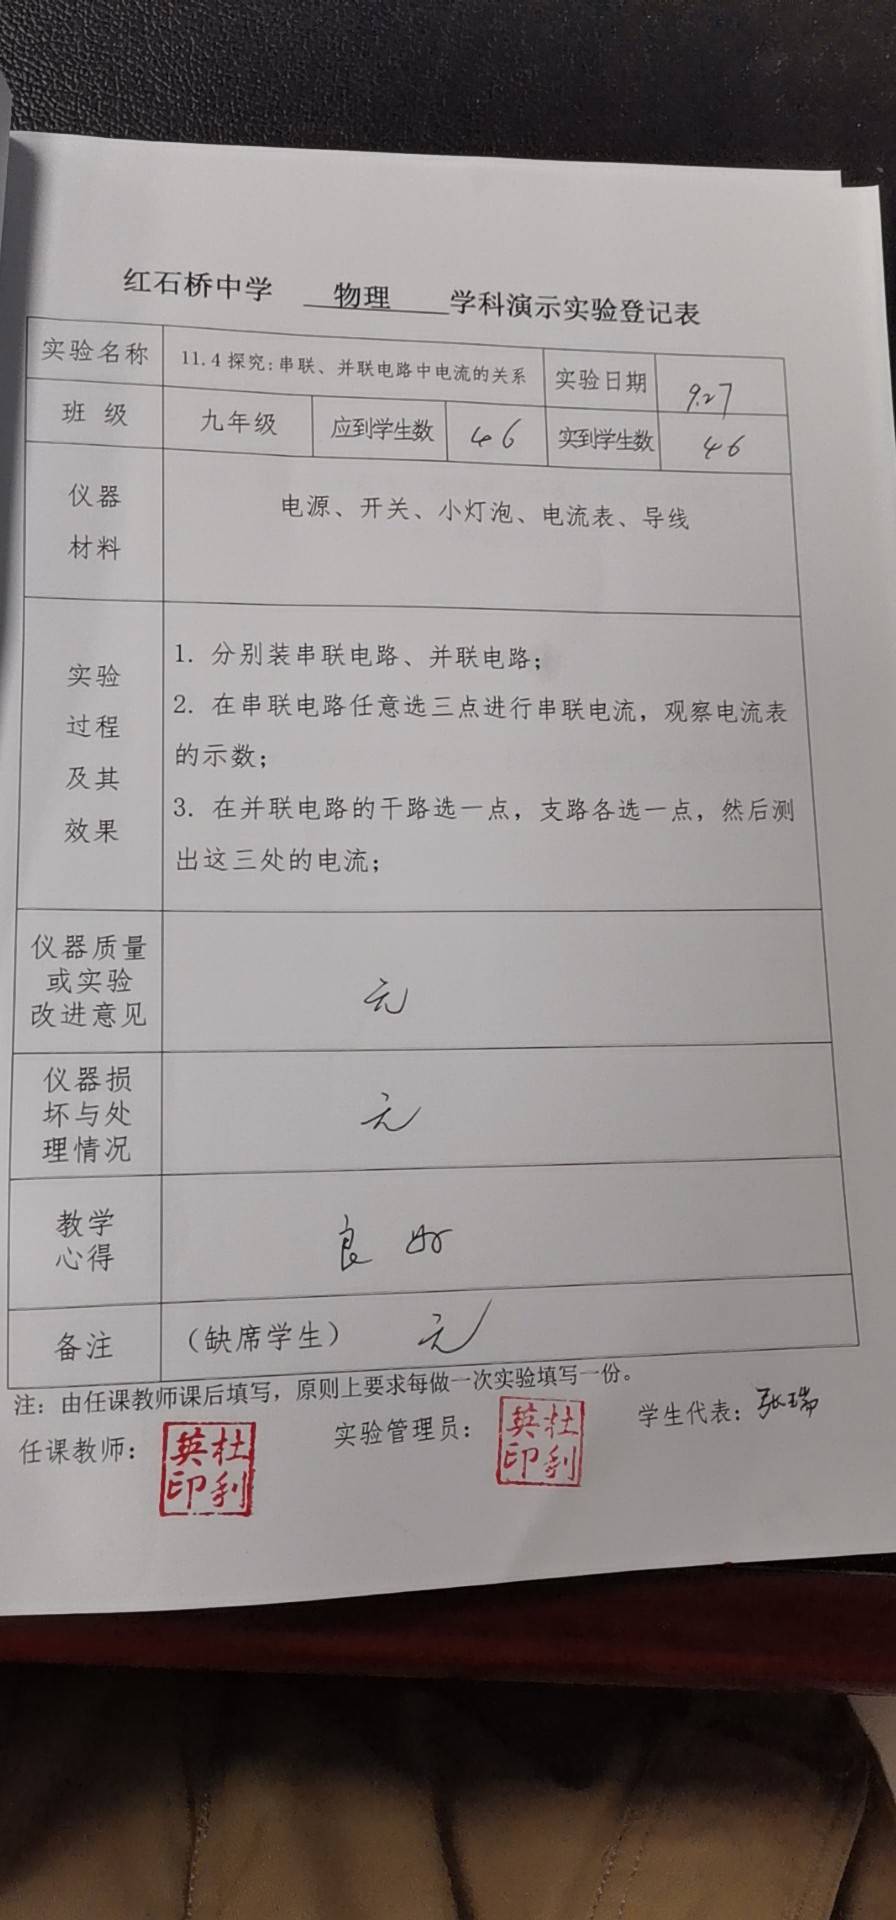 红石桥中学 物理 学科演示实验登记表
实验名称 11.4 探究:串联、并联电路中电流的关系 实验日期 9.27
班 级 九年级 应到学生数 46 实到学生数 46
仪器
材料
电源、开关、小灯泡、电流表、导线
实验
过程
及其
效果
1. 分别装串联电路、并联电路；
2. 在串联电路任意选三点进行串联电流，观察电流表
的示数；
3. 在并联电路的干路选一点，支路各选一点，然后测
出这三处的电流；
仪器质量
或实验
改进意见
无
仪器损
坏与处
理情况
无
教学
心得
良好
备注 （缺席学生） 无
注：由任课教师课后填写，原则上要求每做一次实验填写一份。
任课教师： 实验管理员： 学生代表：张瑞
英杜
印利
英杜
印利